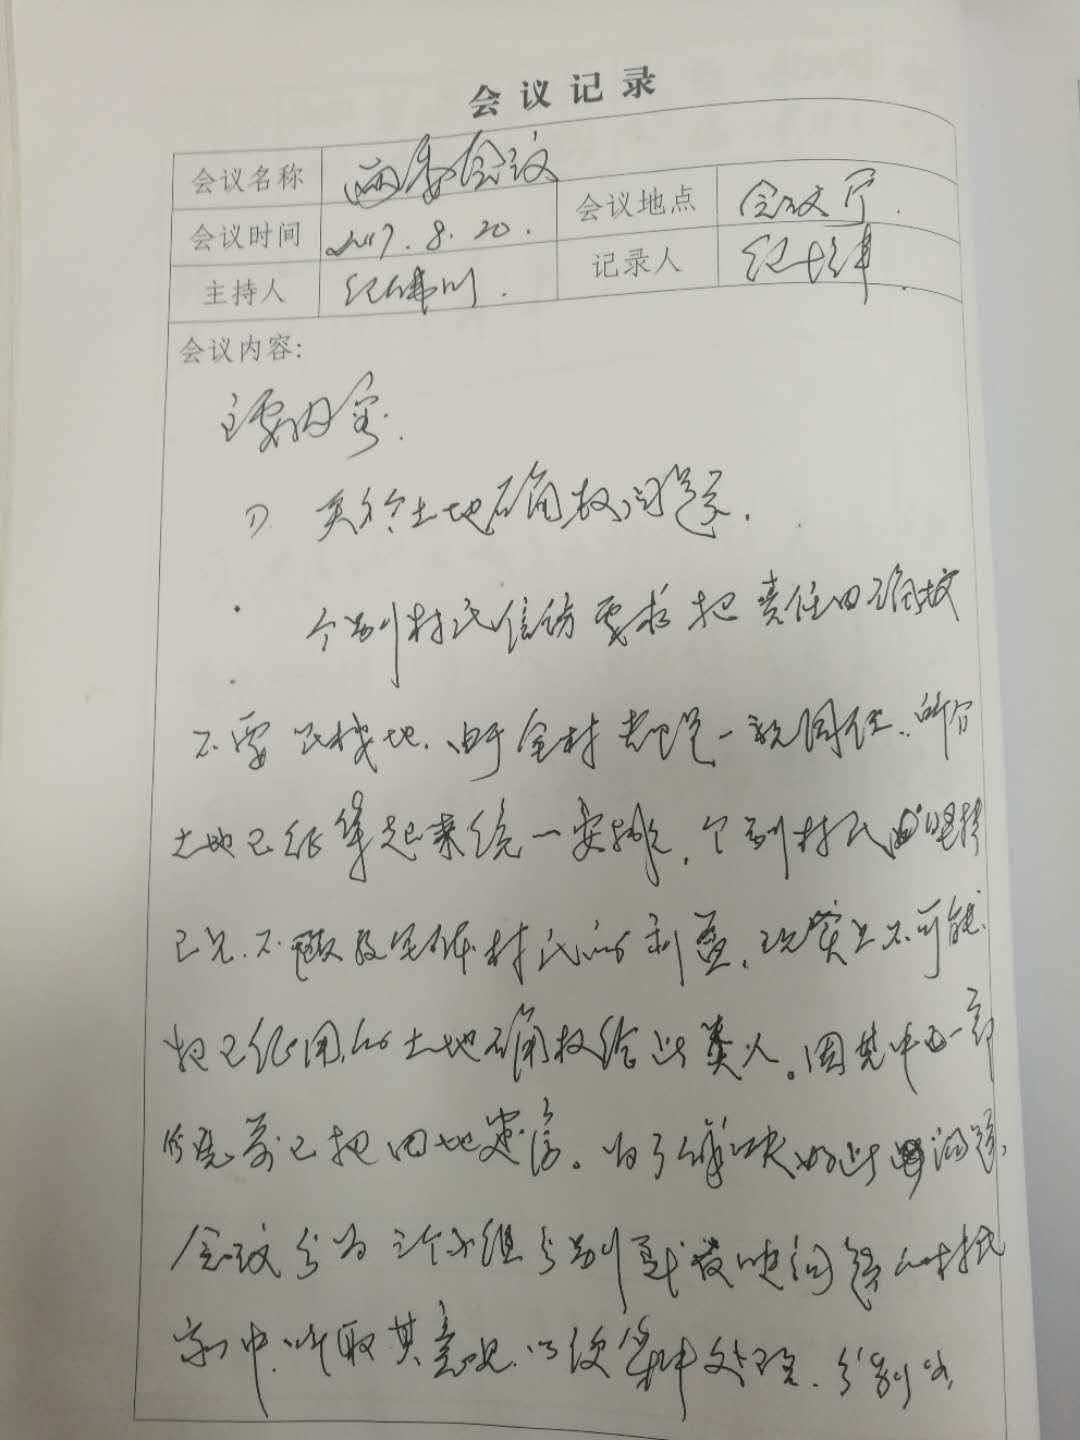 会议记录
会议名称 两委会议
会议时间 2017.8.20. 会议地点 会议厅.
主持人 纪伟川. 记录人 纪
会议内容:
主要内容.
1) 关于土地确权问题.
个别村民信访要求把责任田确权
不要 机地.由于全村都是一致同位.所分
土地已经拿起来统一安排,个别村民 坚持
已见.不顾及全体村民的利益,现实上不可能
把已征用的土地确权给此类人。因其中也一部
份先前已把田地建房。为了解决好此 问题,
会议分为三个小组分别到反映问题的村民
家中.听取其意见.以便集中处理.分别为